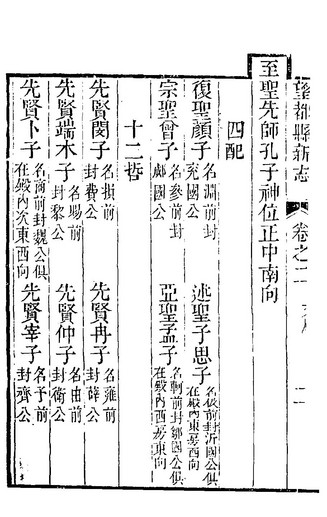 望都縣新志
卷之二
二
至聖先師孔子神位正中南向
四配
復聖顏子 名淵前封兗國公
述聖子思子 名伋前封沂國公俱在殿內東旁西向
宗聖曾子 名參前封郕國公
亞聖孟子 名軻前封鄒國公俱在殿內西旁東向
十二哲
先賢閔子 名損前封費公
先賢冉子 名雍前封薛公
先賢端木子 名賜前封黎公
先賢仲子 名由前封衛公
先賢卜子 名商前封魏公俱在殿內次東西向
先賢宰子 名予前封齊公